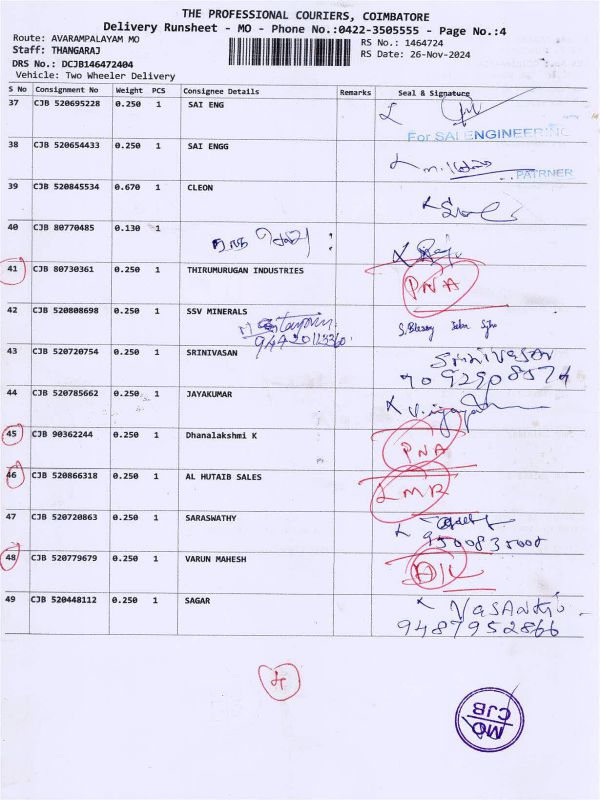 THE PROFESSIONAL COURIERS, COIMBATORE
Delivery Runsheet - MO - Phone No.:0422-3505555 - Page No.:4
Route: AVARAMPALAYAM MO RS No.: 1464724
Staff: THANGARAJ RS Date: 26-Nov-2024
DRS No.: DCJB146472404
Vehicle: Two Wheeler Delivery
S No Consignment No Weight PCS Consignee Details Remarks Seal & Signature
37 CJB 520695228 0.250 1 SAI ENG
For SAI ENGINEERING
38 CJB 520654433 0.250 1 SAI ENGG
PATRNER
39 CJB 520845534 0.670 1 CLEON
40 CJB 80770485 0.130 1
41 CJB 80730361 0.250 1 THIRUMURUGAN INDUSTRIES PNA
42 CJB 520808698 0.250 1 SSV MINERALS
43 CJB 520720754 0.250 1 SRINIVASAN SRINIVASAN
44 CJB 520785662 0.250 1 JAYAKUMAR
45 CJB 90362244 0.250 1 Dhanalakshmi K PNA
46 CJB 520866318 0.250 1 AL HUTAIB SALES
47 CJB 520720863 0.250 1 SARASWATHY
9500835000
48 CJB 520779679 0.250 1 VARUN MAHESH
49 CJB 520448112 0.250 1 SAGAR
9487952866
4
MO
CJB